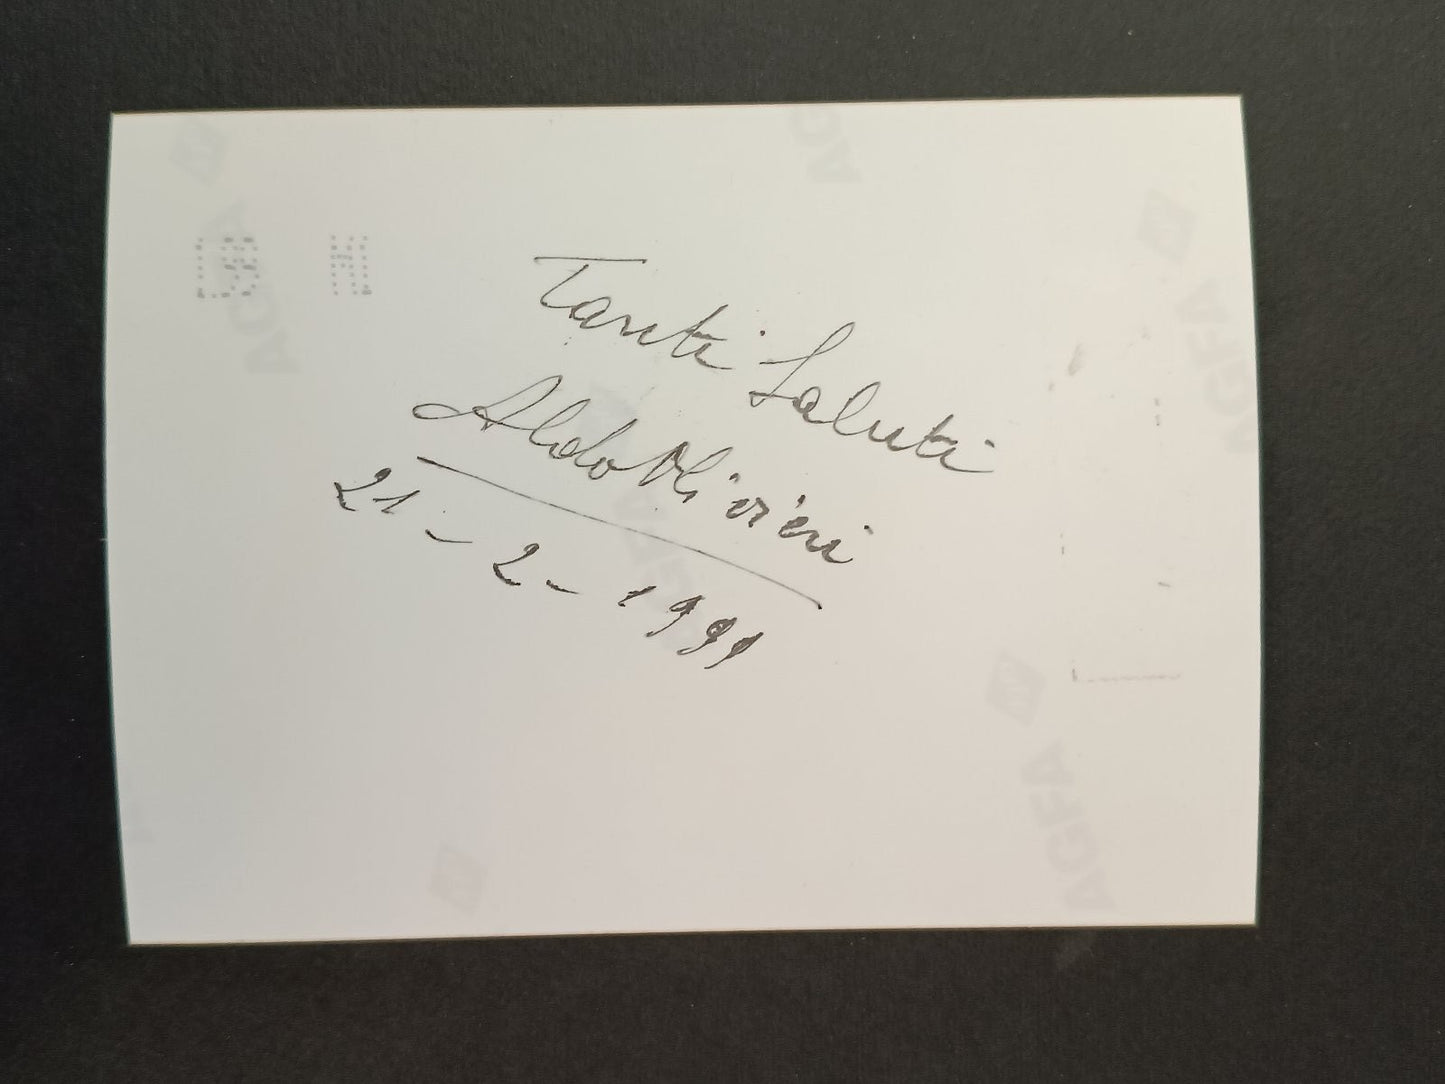 Tanti Saluti
Aldo Olivieri
21-2-1991
AGFA
AGFA
AGFA
AGFA
AGFA